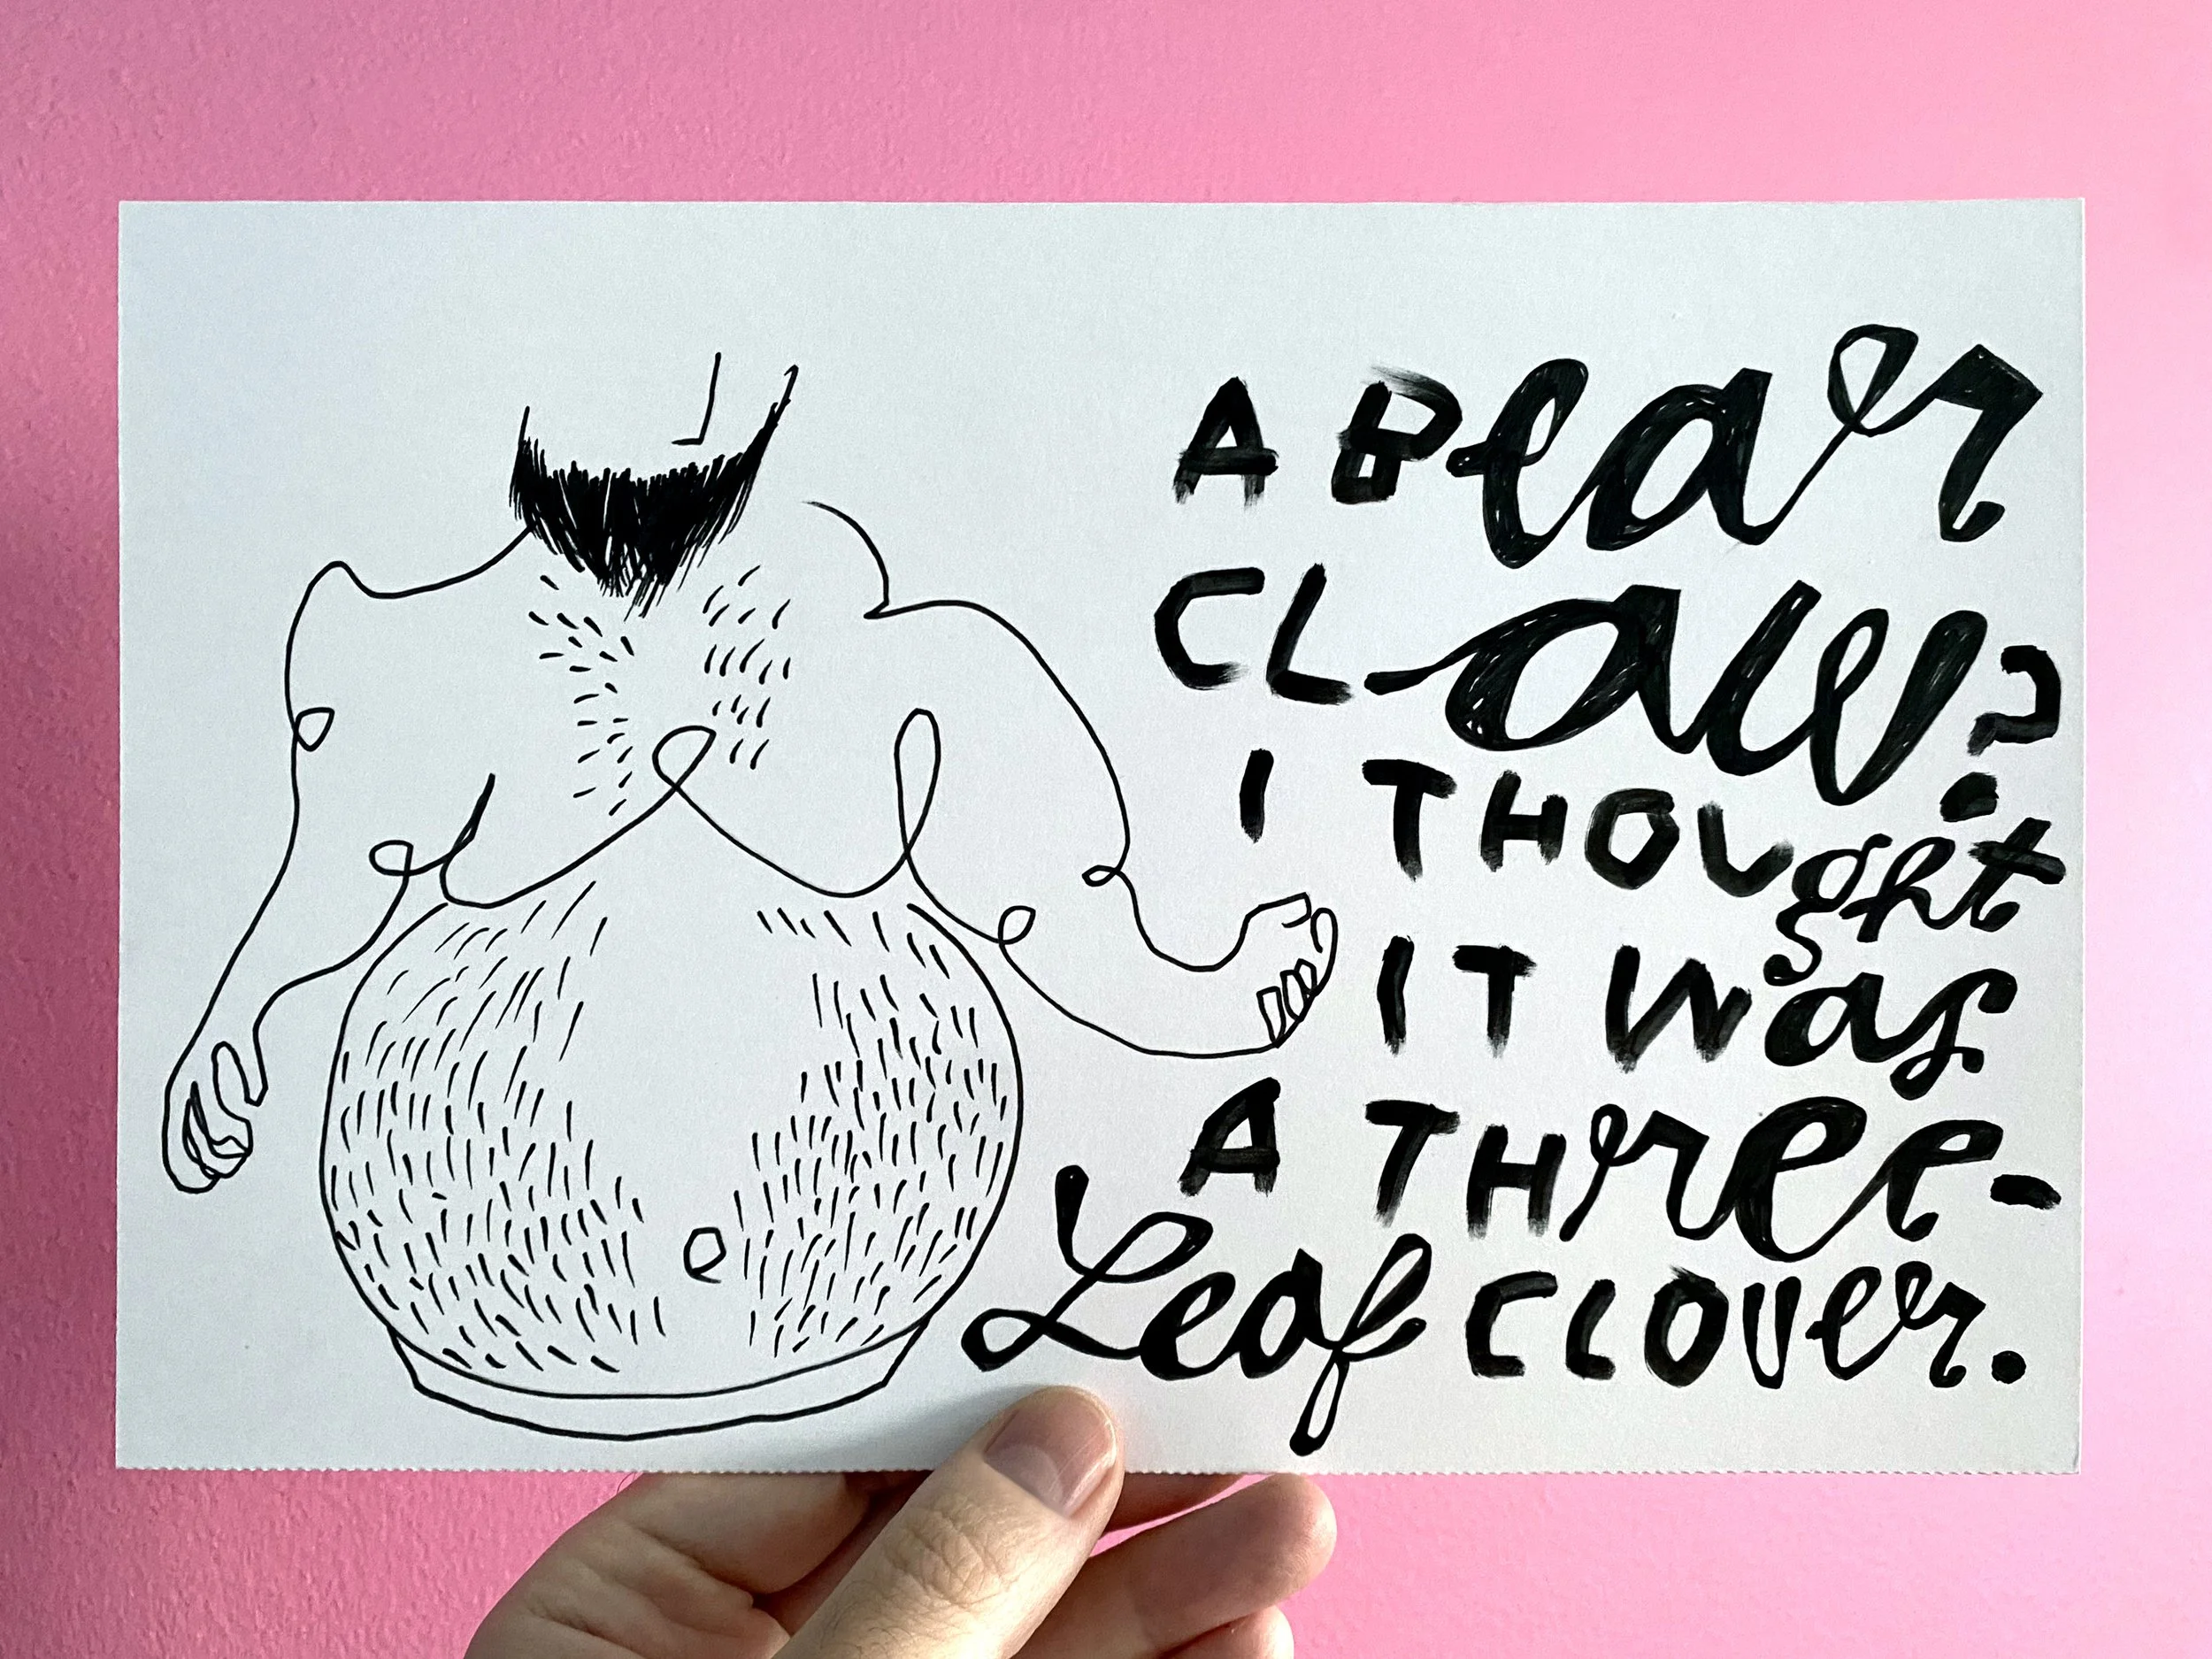 A Bear
CLaw?
I THOUght
IT Was
A THree-
Leaf CLOver.